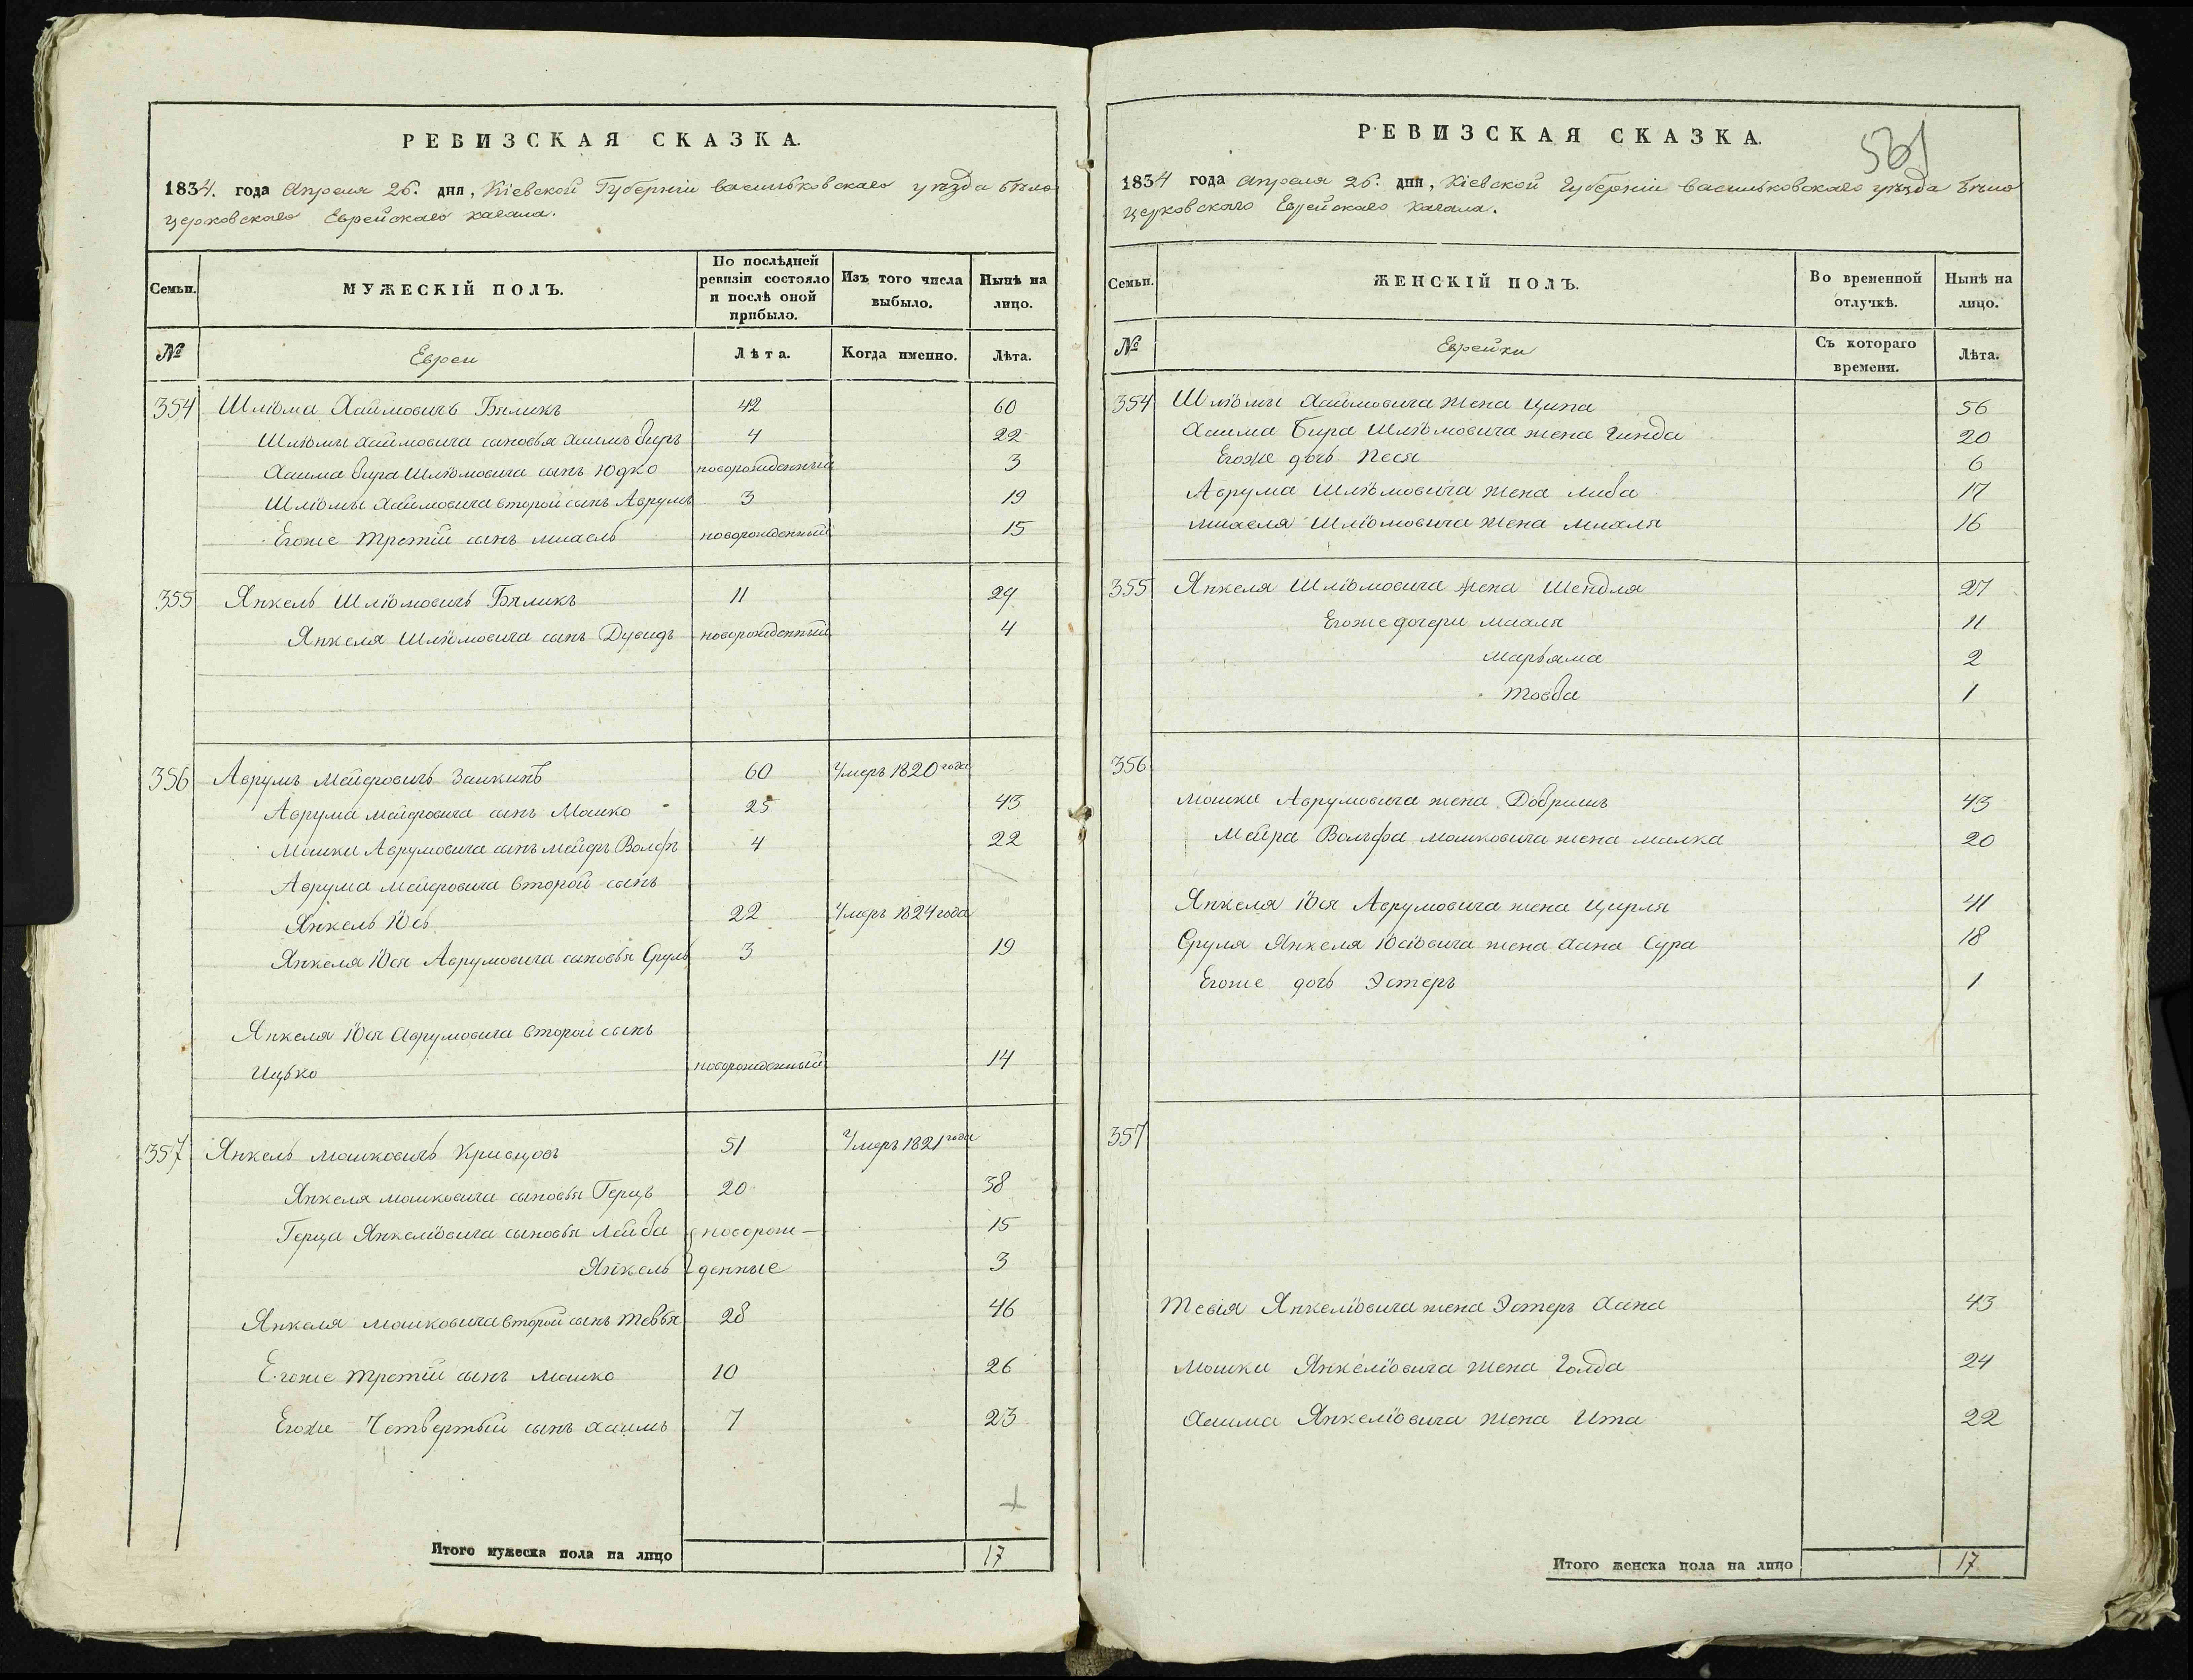 РЕВИЗСКАЯ СКАЗКА.
1834. года Апреля 26. дня, Кіевской Губерніи васильковскаго уѣзда бѣло
церковскаго Еврейскаго кагала.
Семьи.
МУЖЕСКІЙ ПОЛЪ.
По послѣдней ревизіи состояло и послѣ оной прибыло.
Изъ того числа выбыло.
Нынѣ на лицо.
№
Евреи
Лѣта.
Когда именно.
Лѣта.
354 Шліома Хаймовичъ Бяликъ 42 60
Шліомы Хаймовича сыновья Хаимъ биръ 4 22
Хаима бира Шліомовича сынъ Юдко новорожденный 3
Шліомы Хаймовича второй сынъ Аврумъ 3 19
Егоже третій сынъ миаель новорожденный 15
355 Янкель Шліомовичъ Бяликъ 11 29
Янкеля Шліомовича сынъ Дувидъ новорожденный 4
356 Аврумъ Мейеровичъ Заикинъ 60 Умеръ 1820 года
Аврума Мейеровича сынъ Мошко 25 43
Мошки Аврумовича сынъ мейеръ Волфъ 4 22
Аврума Мейеровича второй сынъ
Янкель Іось 22 Умеръ 1824 года
Янкеля Іося Аврумовича сыновья Сруль 3 19
Янкеля Іося Аврумовича второй сынъ
Ицько новорожденный 14
357 Янкель мошковичъ Кривцовъ 51 Умеръ 1821 года
Янкеля мошковича сыновья Герцъ 20 38
Герца Янкеліовича сыновья Лейба новорож- 15
Янкель денные 3
Янкеля мошковича второй сынъ тевья 28 46
Егоже третій сынъ мошко 10 26
Егоже Четвертый сынъ хаимъ 7 23
Итого мужеска пола на лицо 17
РЕВИЗСКАЯ СКАЗКА.
1834 года Апреля 26. дня, Кіевской Губерніи васильковскаго уѣзда бѣло
церковскаго Еврейскаго кагала.
Семьи.
ЖЕНСКІЙ ПОЛЪ.
Во временной отлучкѣ.
Нынѣ на лицо.
№
Еврейки
Съ котораго времени.
Лѣта.
354 Шліомы Хаймовича жена Ципа 56
Хаима Бира Шліомовича жена Гинда 20
Егоже дочь Песя 6
Аврума Шліомовича жена либа 17
миаеля Шліомовича жена миаля 16
355 Янкеля Шліомовича жена Шендля 27
Егоже дочери миаля 11
марьяма 2
товба 1
356
мошки Аврумовича жена Добришъ 43
Мейра Вольфа мошковича жена малка 20
Янкеля Іося Аврумовича жена Цирля 41
Сруля Янкеля Іосіовича жена хана Сура 18
Егоже дочь Эстеръ 1
357
Тевія Янкеліовича жена Эстеръ хана 43
мошки Янкеліовича жена Голда 24
Хаима Янкеліовича жена Ита 22
Итого женска пола на лицо 17